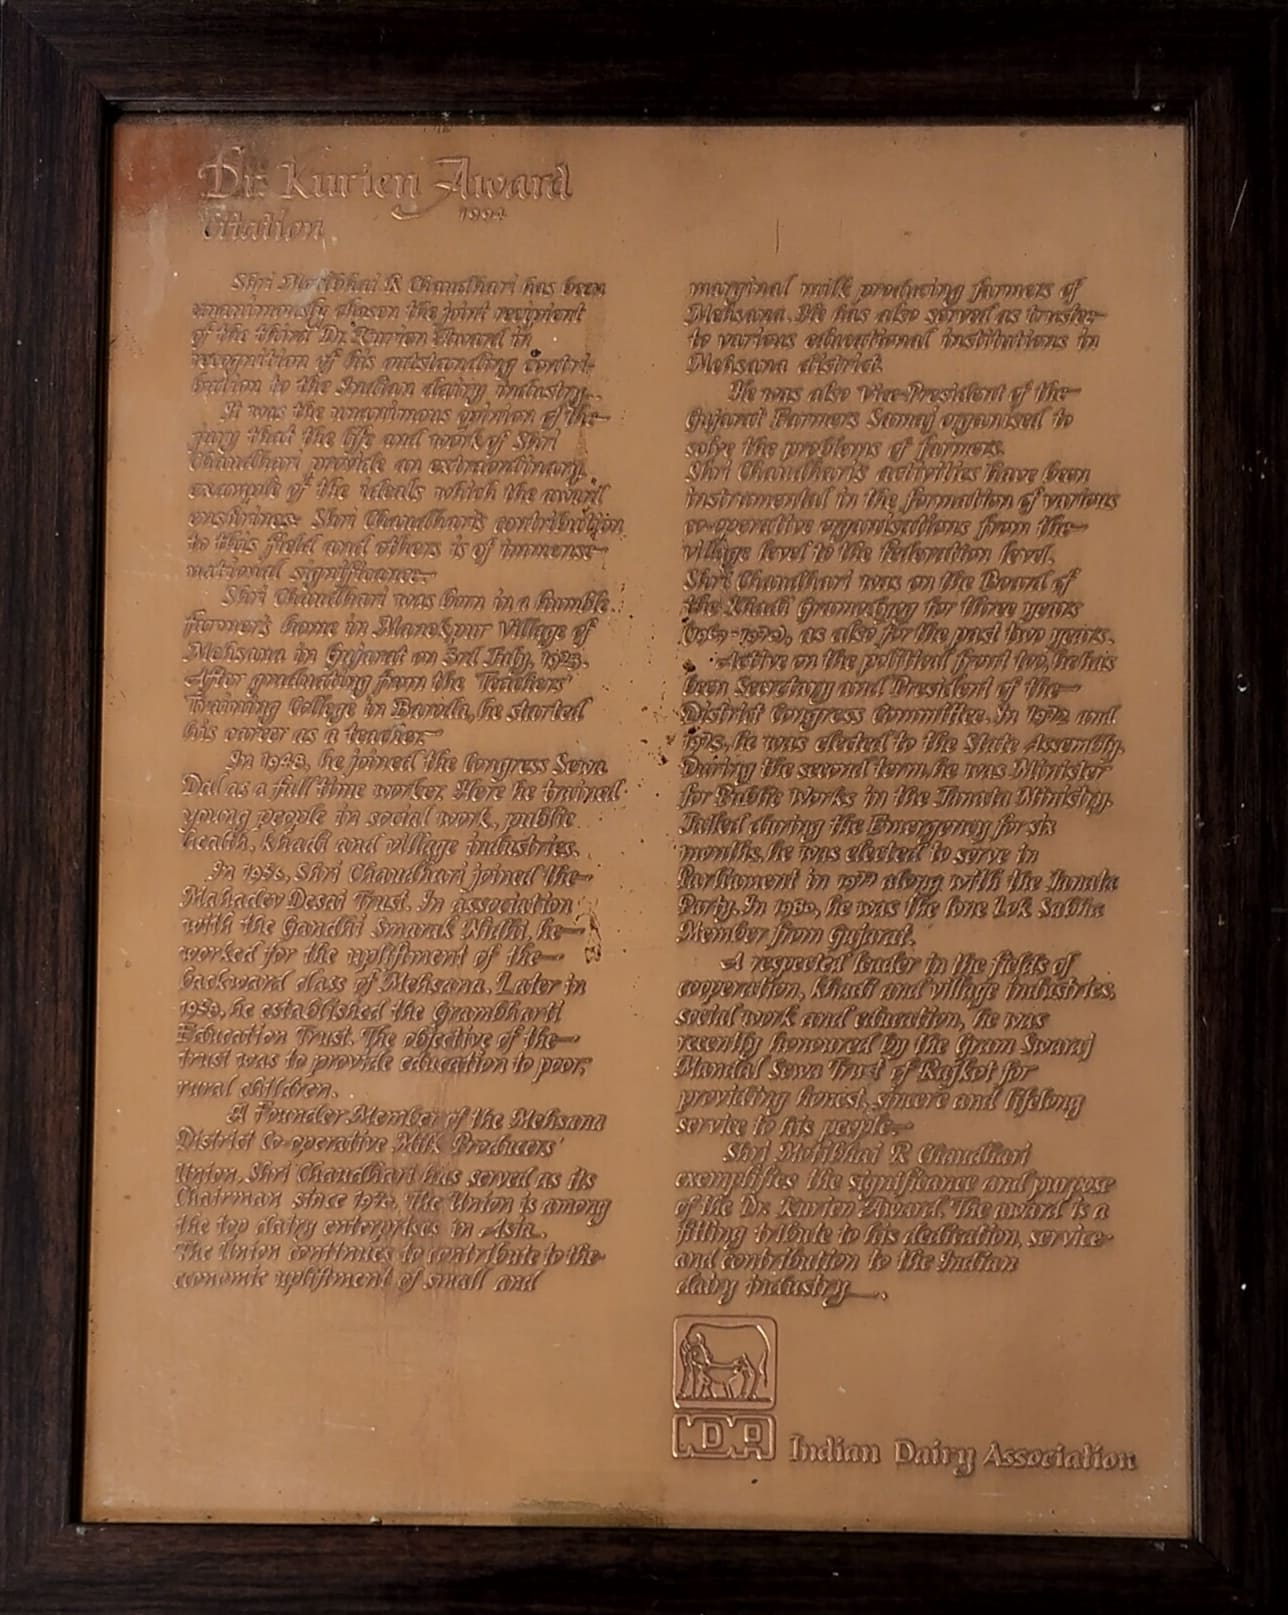 Dr. Kurien Award
1994
Citation
Shri Motibhai R Chaudhari has been
unanimously chosen the joint recipient
of the third Dr. Kurien Award in
recognition of his outstanding contri-
bution to the Indian dairy industry.
It was the unanimous opinion of the
jury that the life and work of Shri
Chaudhari provide an extraordinary
example of the ideals which the award
enshrines. Shri Chaudhari's contribution
to this field and others is of immense
national significance.
Shri Chaudhari was born in a humble
farmer's home in Manekpur Village of
Mehsana in Gujarat on 3rd July, 1923.
After graduating from the Teachers'
Training College in Baroda, he started
his career as a teacher.
In 1948, he joined the Congress Sewa
Dal as a full time worker. Here he trained
young people in social work, public
health, khadi and village industries.
In 1956, Shri Chaudhari joined the
Mahadev Desai Trust. In association
with the Gandhi Smarak Nidhi, he
worked for the upliftment of the
backward class of Mehsana. Later in
he established the Grambharti
Education Trust. The objective of the
trust was to provide education to poor,
rural children.
A Founder Member of the Mehsana
District Co-operative Milk Producers'
Union, Shri Chaudhari has served as its
Chairman since The Union is among
the top dairy enterprises in Asia.
The Union continues to contribute to the
economic upliftment of small and
marginal milk producing farmers of
Mehsana. He has also served as trustee
to various educational institutions in
Mehsana district.
He was also Vice-President of the
Gujarat Farmers Samaj organised to
solve the problems of farmers.
Shri Chaudhari's activities have been
instrumental in the formation of various
co-operative organisations from the
village level to the federation level.
Shri Chaudhari was on the Board of
the Khadi Gramodyog for three years
as also for the past two years.
Active on the political front too, he has
been Secretary and President of the
District Congress Committee. In 1972 and
1975, he was elected to the State Assembly.
During the second term, he was Minister
for Public Works in the Janata Ministry.
Jailed during the Emergency for six
months, he was elected to serve in
Parliament in 1977 along with the Janata
Party. In 1980, he was the lone Lok Sabha
Member from Gujarat.
A respected leader in the fields of
cooperation, khadi and village industries,
social work and education, he was
recently honoured by the Gram Swaraj
Mandal Sewa Trust of Rajkot for
providing honest, sincere and lifelong
service to his people.
Shri Motibhai R Chaudhari
exemplifies the significance and purpose
of the Dr. Kurien Award. The award is a
fitting tribute to his dedication, service
and contribution to the Indian
dairy industry.
IDA
Indian Dairy Association